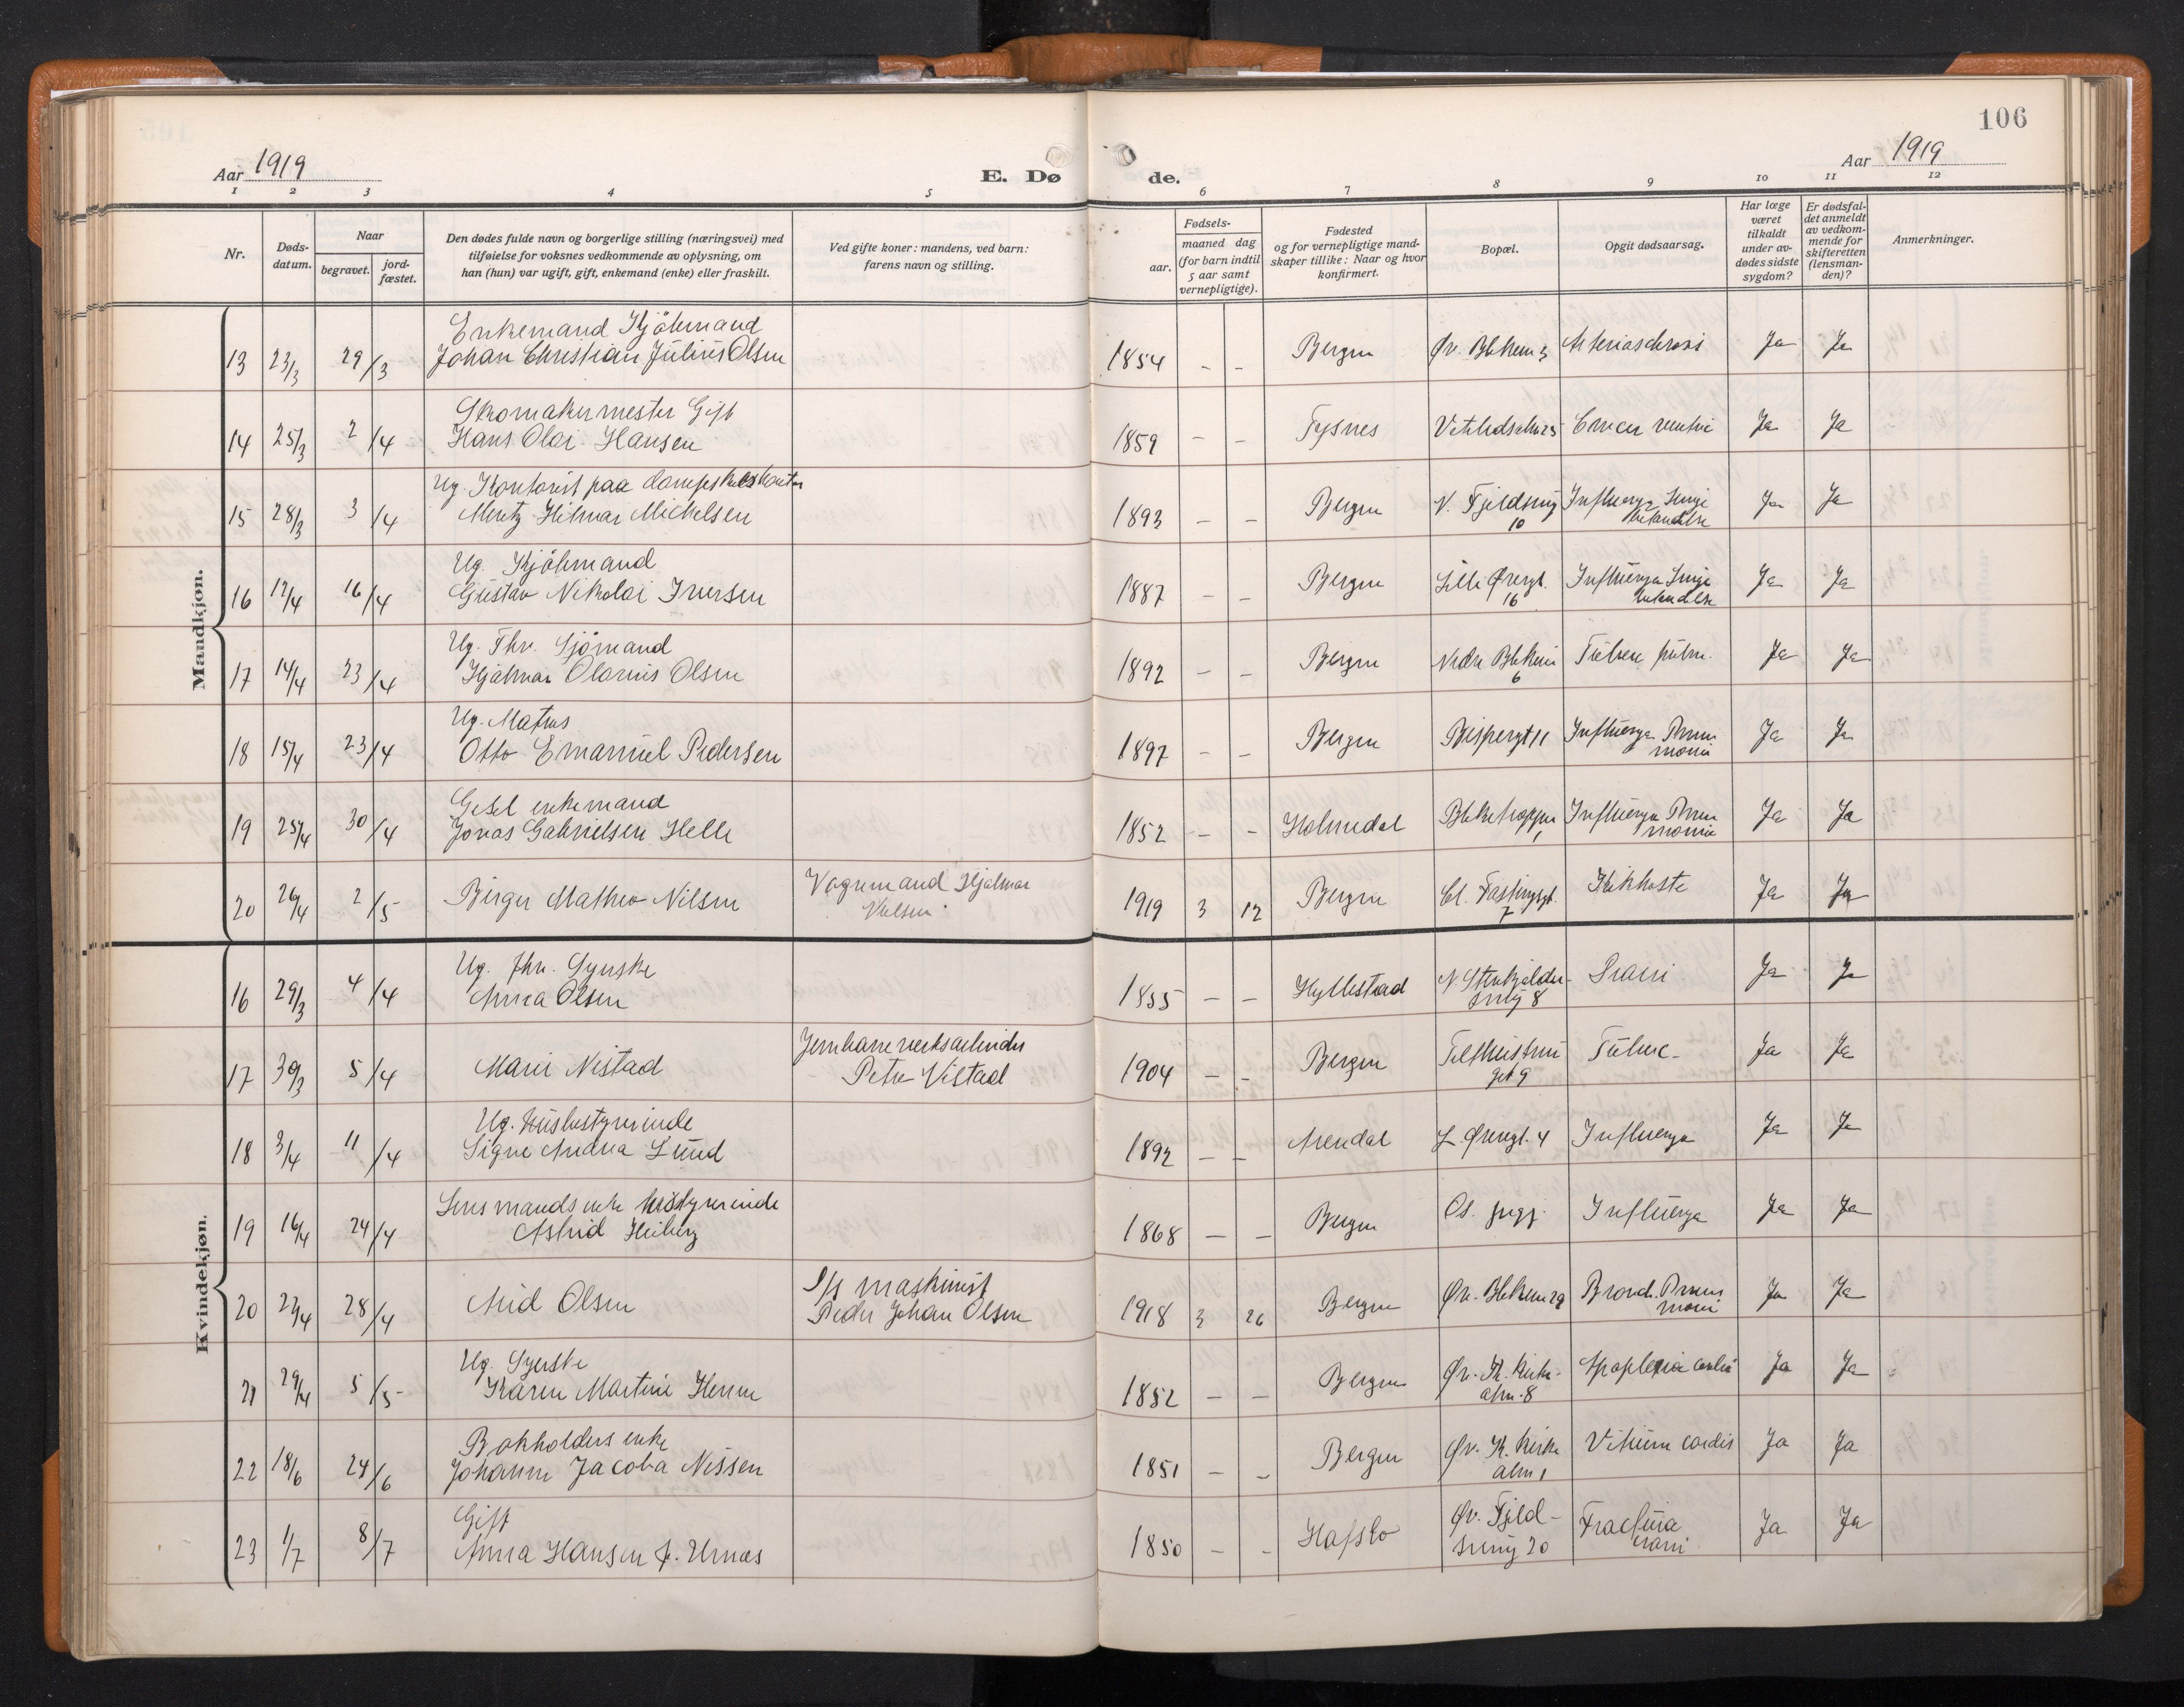 106
Aar 1919
E. Dø de.
Aar 1919
1 2 3 4 5 6 7 8 9 10 11 12
Nr.
Døds-
datum.
Naar
begravet.
jord-
fæstet.
Den dødes fulde navn og borgerlige stilling (næringsvei) med
tilføielse for voksnes vedkommende av oplysning, om
han (hun) var ugift, gift, enkemand (enke) eller fraskilt.
Ved gifte koner: mandens, ved barn:
farens navn og stilling.
Fødsels-
aar.
maaned dag
(for barn indtil
5 aar samt
vernepligtige).
Fødested
og for vernepligtige mand-
skaper tillike: Naar og hvor
konfirmert.
Bopæl.
Opgit dødsaarsag.
Har læge
været
tilkaldt
under av-
dødes sidste
sygdom?
Er dødsfal-
det anmeldt
av vedkom-
mende for
skifteretten
(lensman-
den)?
Anmerkninger.
Mandkjøn.
Enkemand Kjølmand
13 23/3 29/3 Johan Christian Julius Olsen 1854 – – Bergen Øv. Blekevei 3 Arterioschrosi Ja Ja
Skomakermester Gift
14 25/3 2/4 Hans Olai Hansen 1859 – – Tysnes 25 Cancer ventri Ja Ja
Ug. Kontorist paa dampskibskontor
15 28/3 3/4 Mentz Hilmar Michelsen 1893 – – Bergen N. Fjeldsmug Influenza Lunge Ja Ja
10 betændelse
Ug. Kjølmand
16 12/4 16/4 Gustav Nikolai Iversen 1887 – – Bergen Lille Øvregt. Influenza Lunge Ja Ja
16 betændelse
Ug. Fhv. Sjømand
17 14/4 23/4 Hjalmar Olarius Olsen 1892 – – Bergen Nedre Blekevei Tuberc pulm. Ja Ja
6
Ug. Matros
18 15/4 23/4 Otto Emanuel Pedersen 1897 – – Bergen Bispegt 11 Influenza Pneu Ja Ja
monia
Gesel enkemand
19 25/4 30/4 Jonas Gabrielsen Helle 1852 – – Holmedal Influenza Pneu Ja Ja
1 monia
20 26/4 2/5 Birger Matheo Nilsen Vognmand Hjalmar 1919 3 12 Bergen Cl. Fastingsgt. Kikhoste Ja Ja
Nilsen 7
Kvindekjøn.
Ug. fhv. Syerske
16 29/3 4/4 Anna Olsen 1855 – – Hyllestad N. Stenkjelder- Ja Ja
smug 8
Jernbaneverksarbeider
17 30/3 5/4 Marie Nistad Petter Vistad 1904 – – Bergen Tuberc- Ja Ja
gt 9
Ug. Husbestyrerinde
18 3/4 11/4 Signe Andrea Lund 1892 – – Arendal L. Øvregt. 4 Influenza Ja Ja
Lensmands enke husstyrerinde
19 16/4 24/4 Astrid Heiberg 1868 – – Bergen Influenza Ja Ja
S/s maskinist
20 22/4 28/4 Arid Olsen Peder Johan Olsen 1918 3 26 Bergen Øv. Blekevei 29 Bronch. Pneu Ja Ja
moni
Ug. Syerske
21 29/4 5/5 Karen Martine Herm 1852 – – Bergen Øv. K. Kirke- Apoplexia cerebri Ja Ja
alm. 8
Bokholders enke
22 18/6 24/6 Johanne Jacoba Nissen 1851 – – Bergen Øv. K. Kirke Vitium cordis Ja Ja
alm 1
Gift
23 1/7 8/7 Anna Hansen f. Urnæs 1850 – – Hafslo Øv. Fjeld- Fractura Ja Ja
smug 20 crani